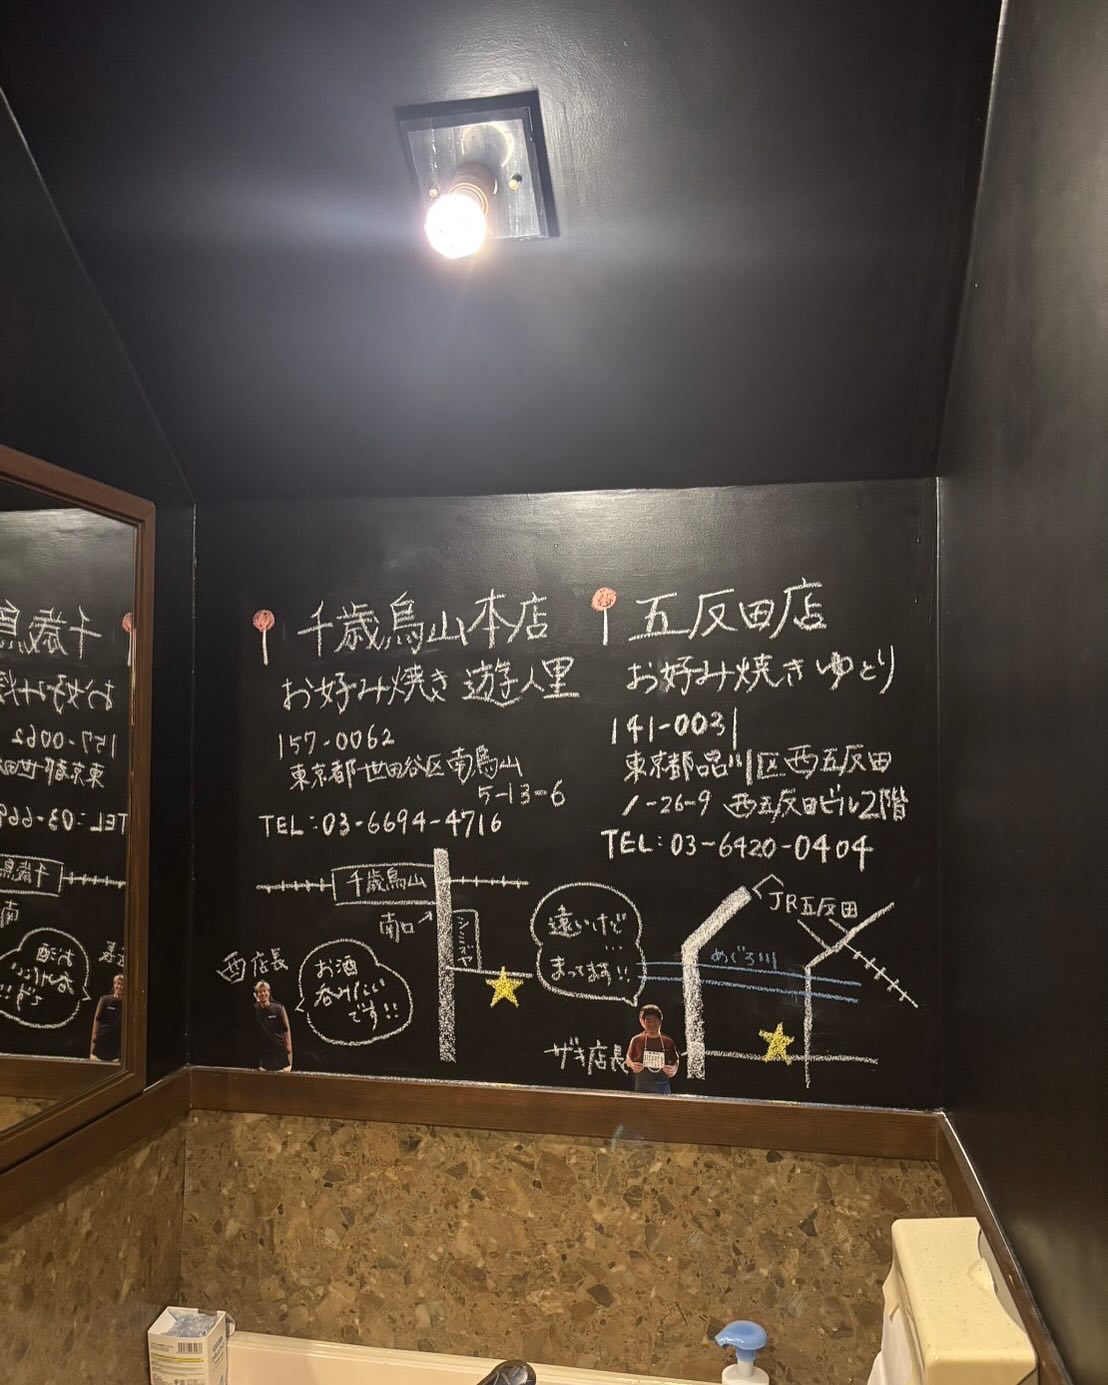 千歳烏山本店
お好み焼き 遊人里
157-0062
東京都世田谷区南烏山
5-13-6
TEL:03-6694-4716
千歳烏山
南口
シミズヤ
西店長
お酒
呑みたい
です!!
五反田店
お好み焼き ゆとり
141-0031
東京都品川区西五反田
1-26-9 西五反田ビル2階
TEL:03-6420-0404
JR五反田
めぐろ川
遠いけど
...
まってます!!
ザキ店長